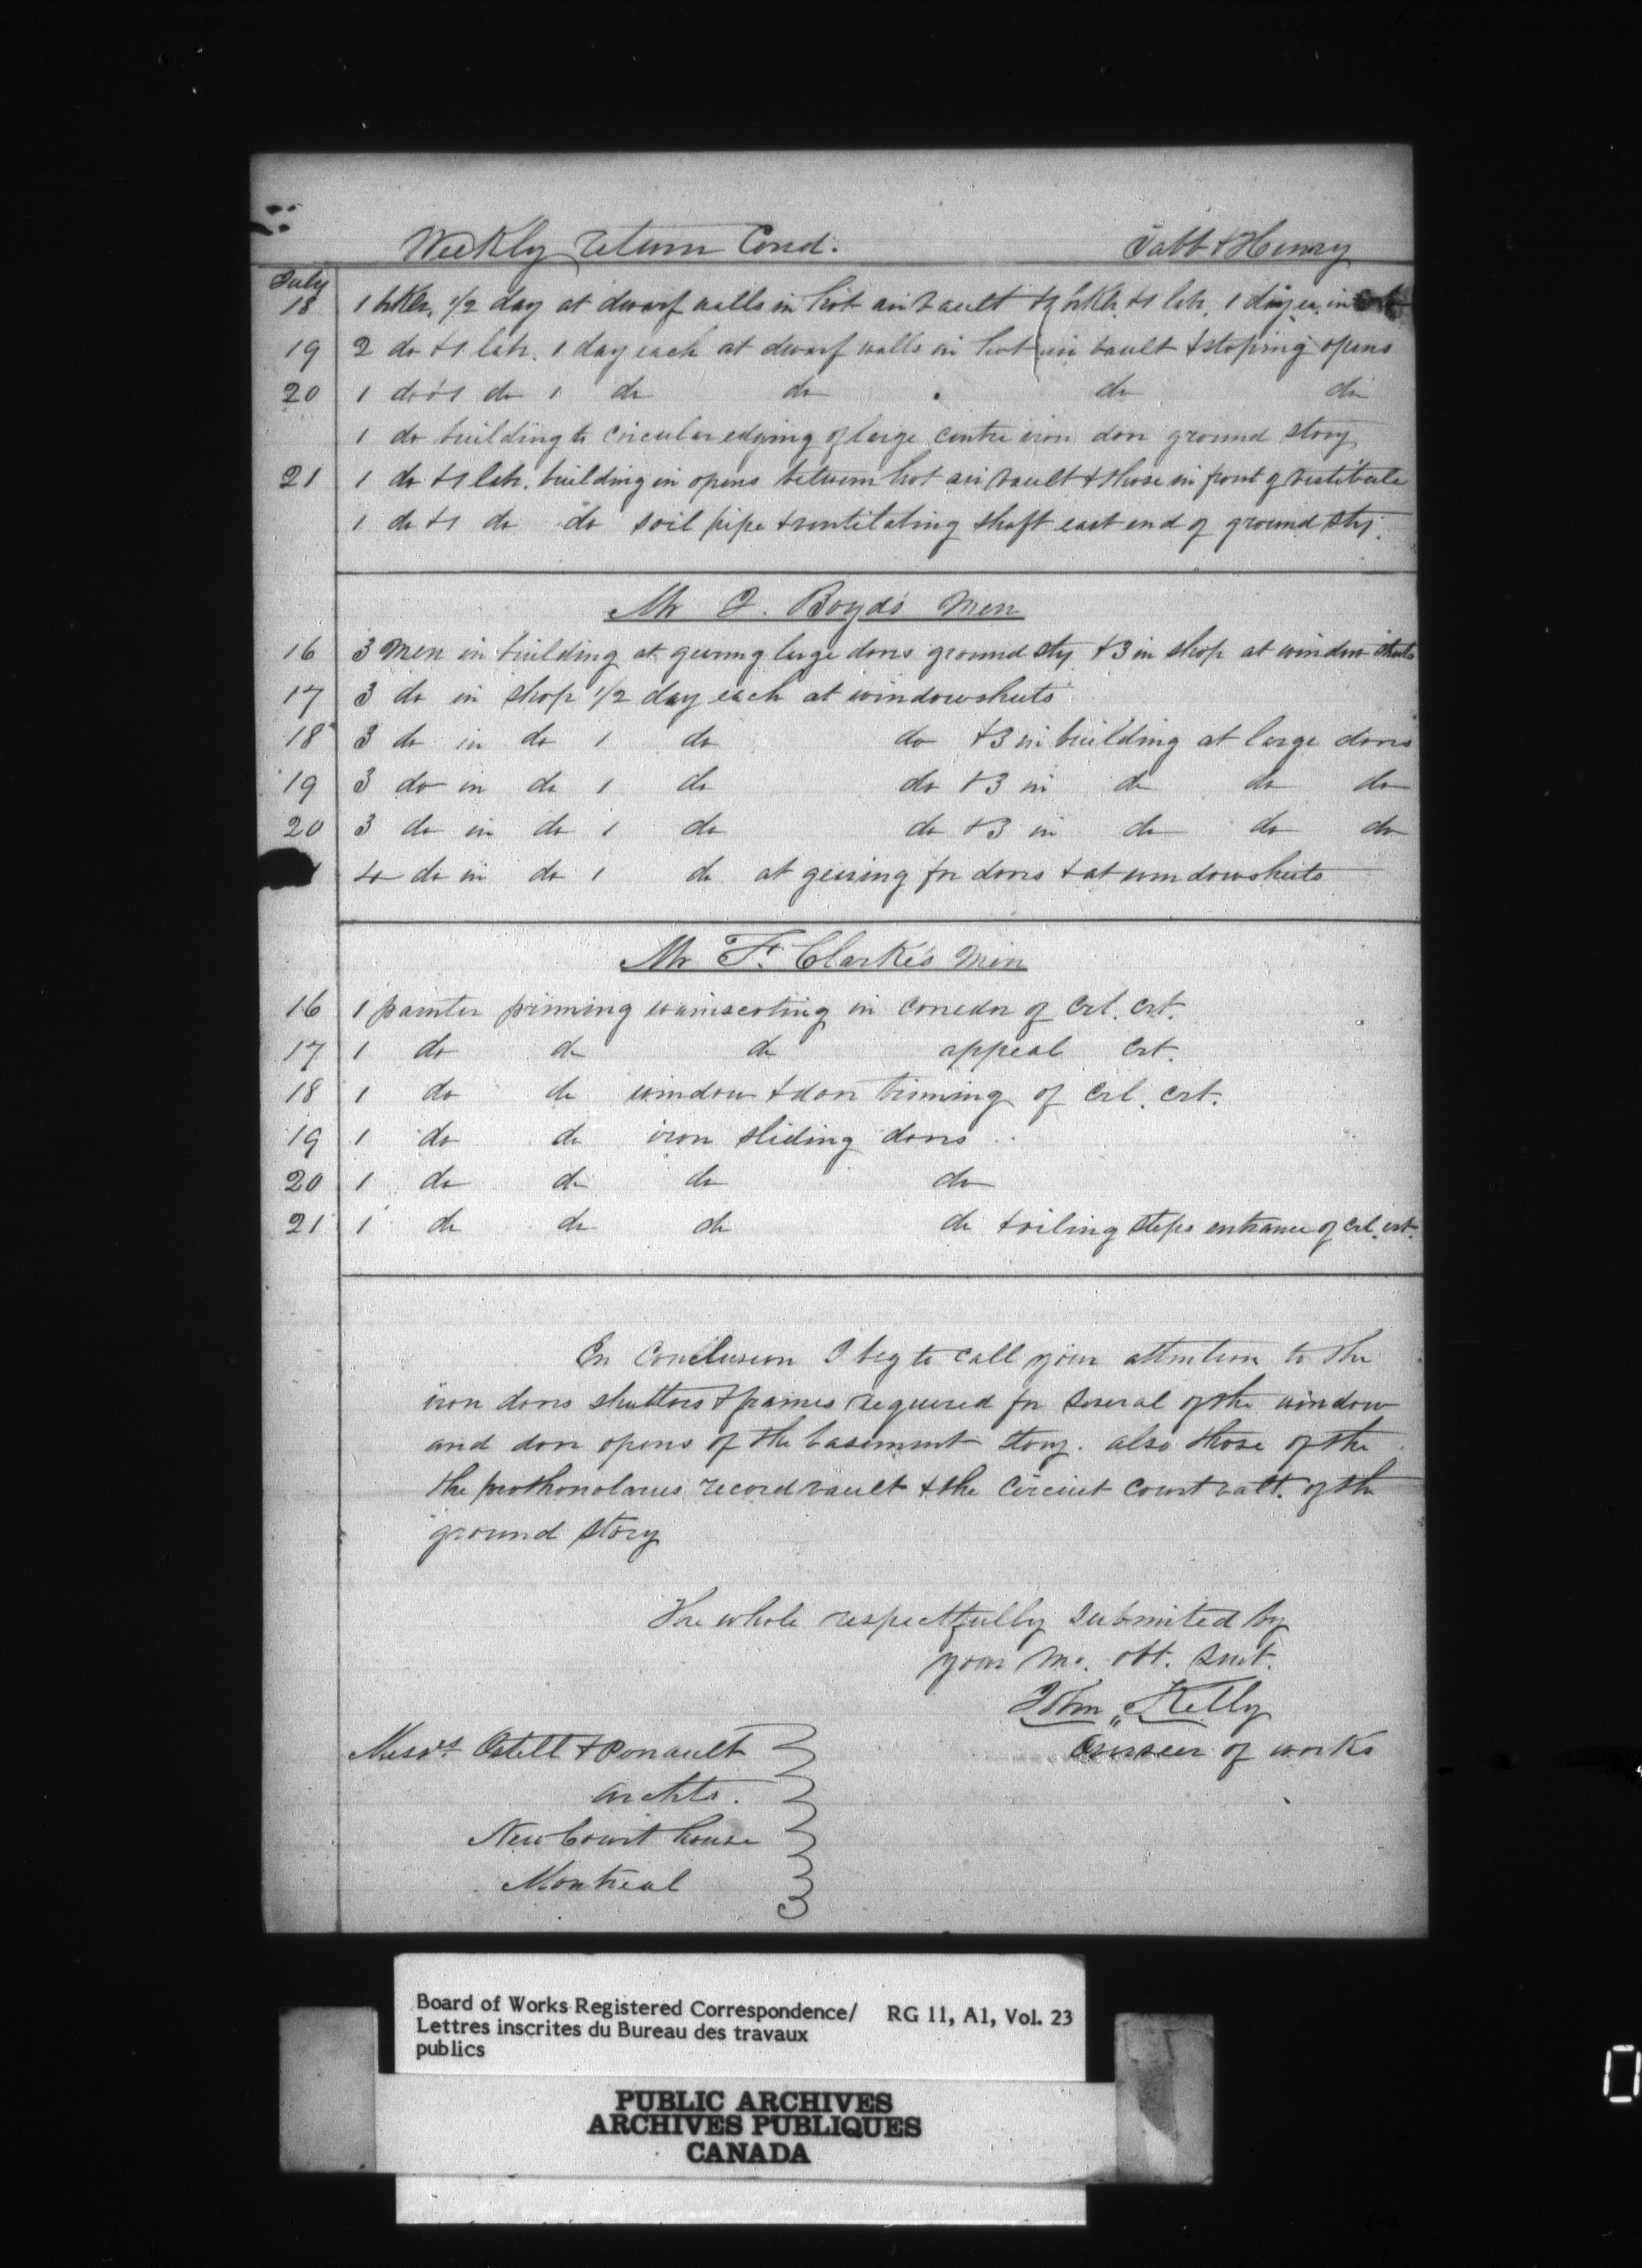 Weekly return Cond. Tabb & Henry
July
18 1 brklr. 1/2 day at dwarf walls in hot air vault & 2 brklr. & 1 labr. 1 day ea. in
19 2 do & 1 labr. 1 day each at dwarf walls in hot air vault & stoping opens
20 1 do & 1 do 1 do do do do
1 do building to circular edging of large centre iron door ground story
21 1 do & 1 labr. building in opens between hot air vault & those in front of vestibule
1 do & 1 do do soil pipe & ventilating shaft east end of ground sty.
Mr J. Boyd's Men
16 3 Men in building at geiring large doors ground sty & 3 in shop at window shuts
17 3 do in shop 1/2 day each at windowshuts
18 3 do in do 1 do do & 3 in building at large doors
19 3 do in do 1 do do & 3 in do do do
20 3 do in do 1 do do & 3 in do do do
4 do in do 1 do at geiring for doors & at windowshuts
Mr F. Clarke's Men
16 1 painter priming wainscoting in coredor of Crl. Crt.
17 1 do do do appeal Crt.
18 1 do do window & door triming of Crl. Crt.
19 1 do do iron sliding doors
20 1 do do do do
21 1 do do do do & oiling steps entrance of Crl. Crt.
En Conclusion I beg to call your attention to the
iron doors shutters & frames required for several of the window
and door opens of the basement story. also those of the
the prothonotaries record vault & the Circuit Court valt. of the
ground story
The whole respectfully submited by
your Mo. obt. Servt.
John „ Kelly
Overseer of works
Messrs Ostell & Perrault
archts.
New Court house
Montreal
Board of Works Registered Correspondence/ RG 11, A1, Vol. 23
Lettres inscrites du Bureau des travaux
publics
PUBLIC ARCHIVES
ARCHIVES PUBLIQUES
CANADA